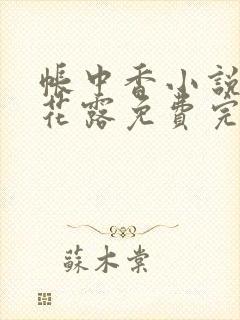 帳中香小說
花露免費完
蘇木棠